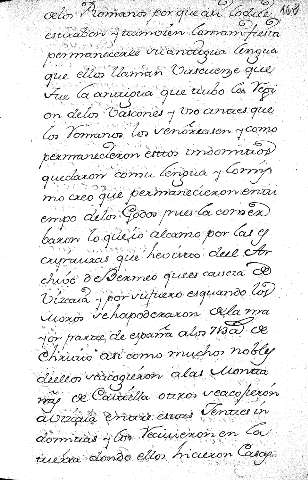 delos Romanos porque asi lo
y tambien la manifiesta
permaneciente su antigua lengua
que ellos llaman Vascuense que
fue la antigua que tubo la Regi
on delos Vascones y no antes que
los Romanos los venciesen y como
permanecieron estos indomitos
quedaron con su lengua y lo mis
mo creo que permanecieron en ti
empo delos Godos pues la conser
baron lo que yo alcanso por las es
crituras que he visto del Ar
chivo de Bermeo que es caveza de
Vizcaia y por ultimo es quando los
Moros se hapoderaron dela ma
yor parte de españa alos de
Christo asi como muchos nobles
de ellos se recogieron a las Monta
ñas de Castilla otros se acogieron
a Vizcaia entre estas Gentes in
domitas y los recivieron en la
tierra donde ellos hicieron Casas